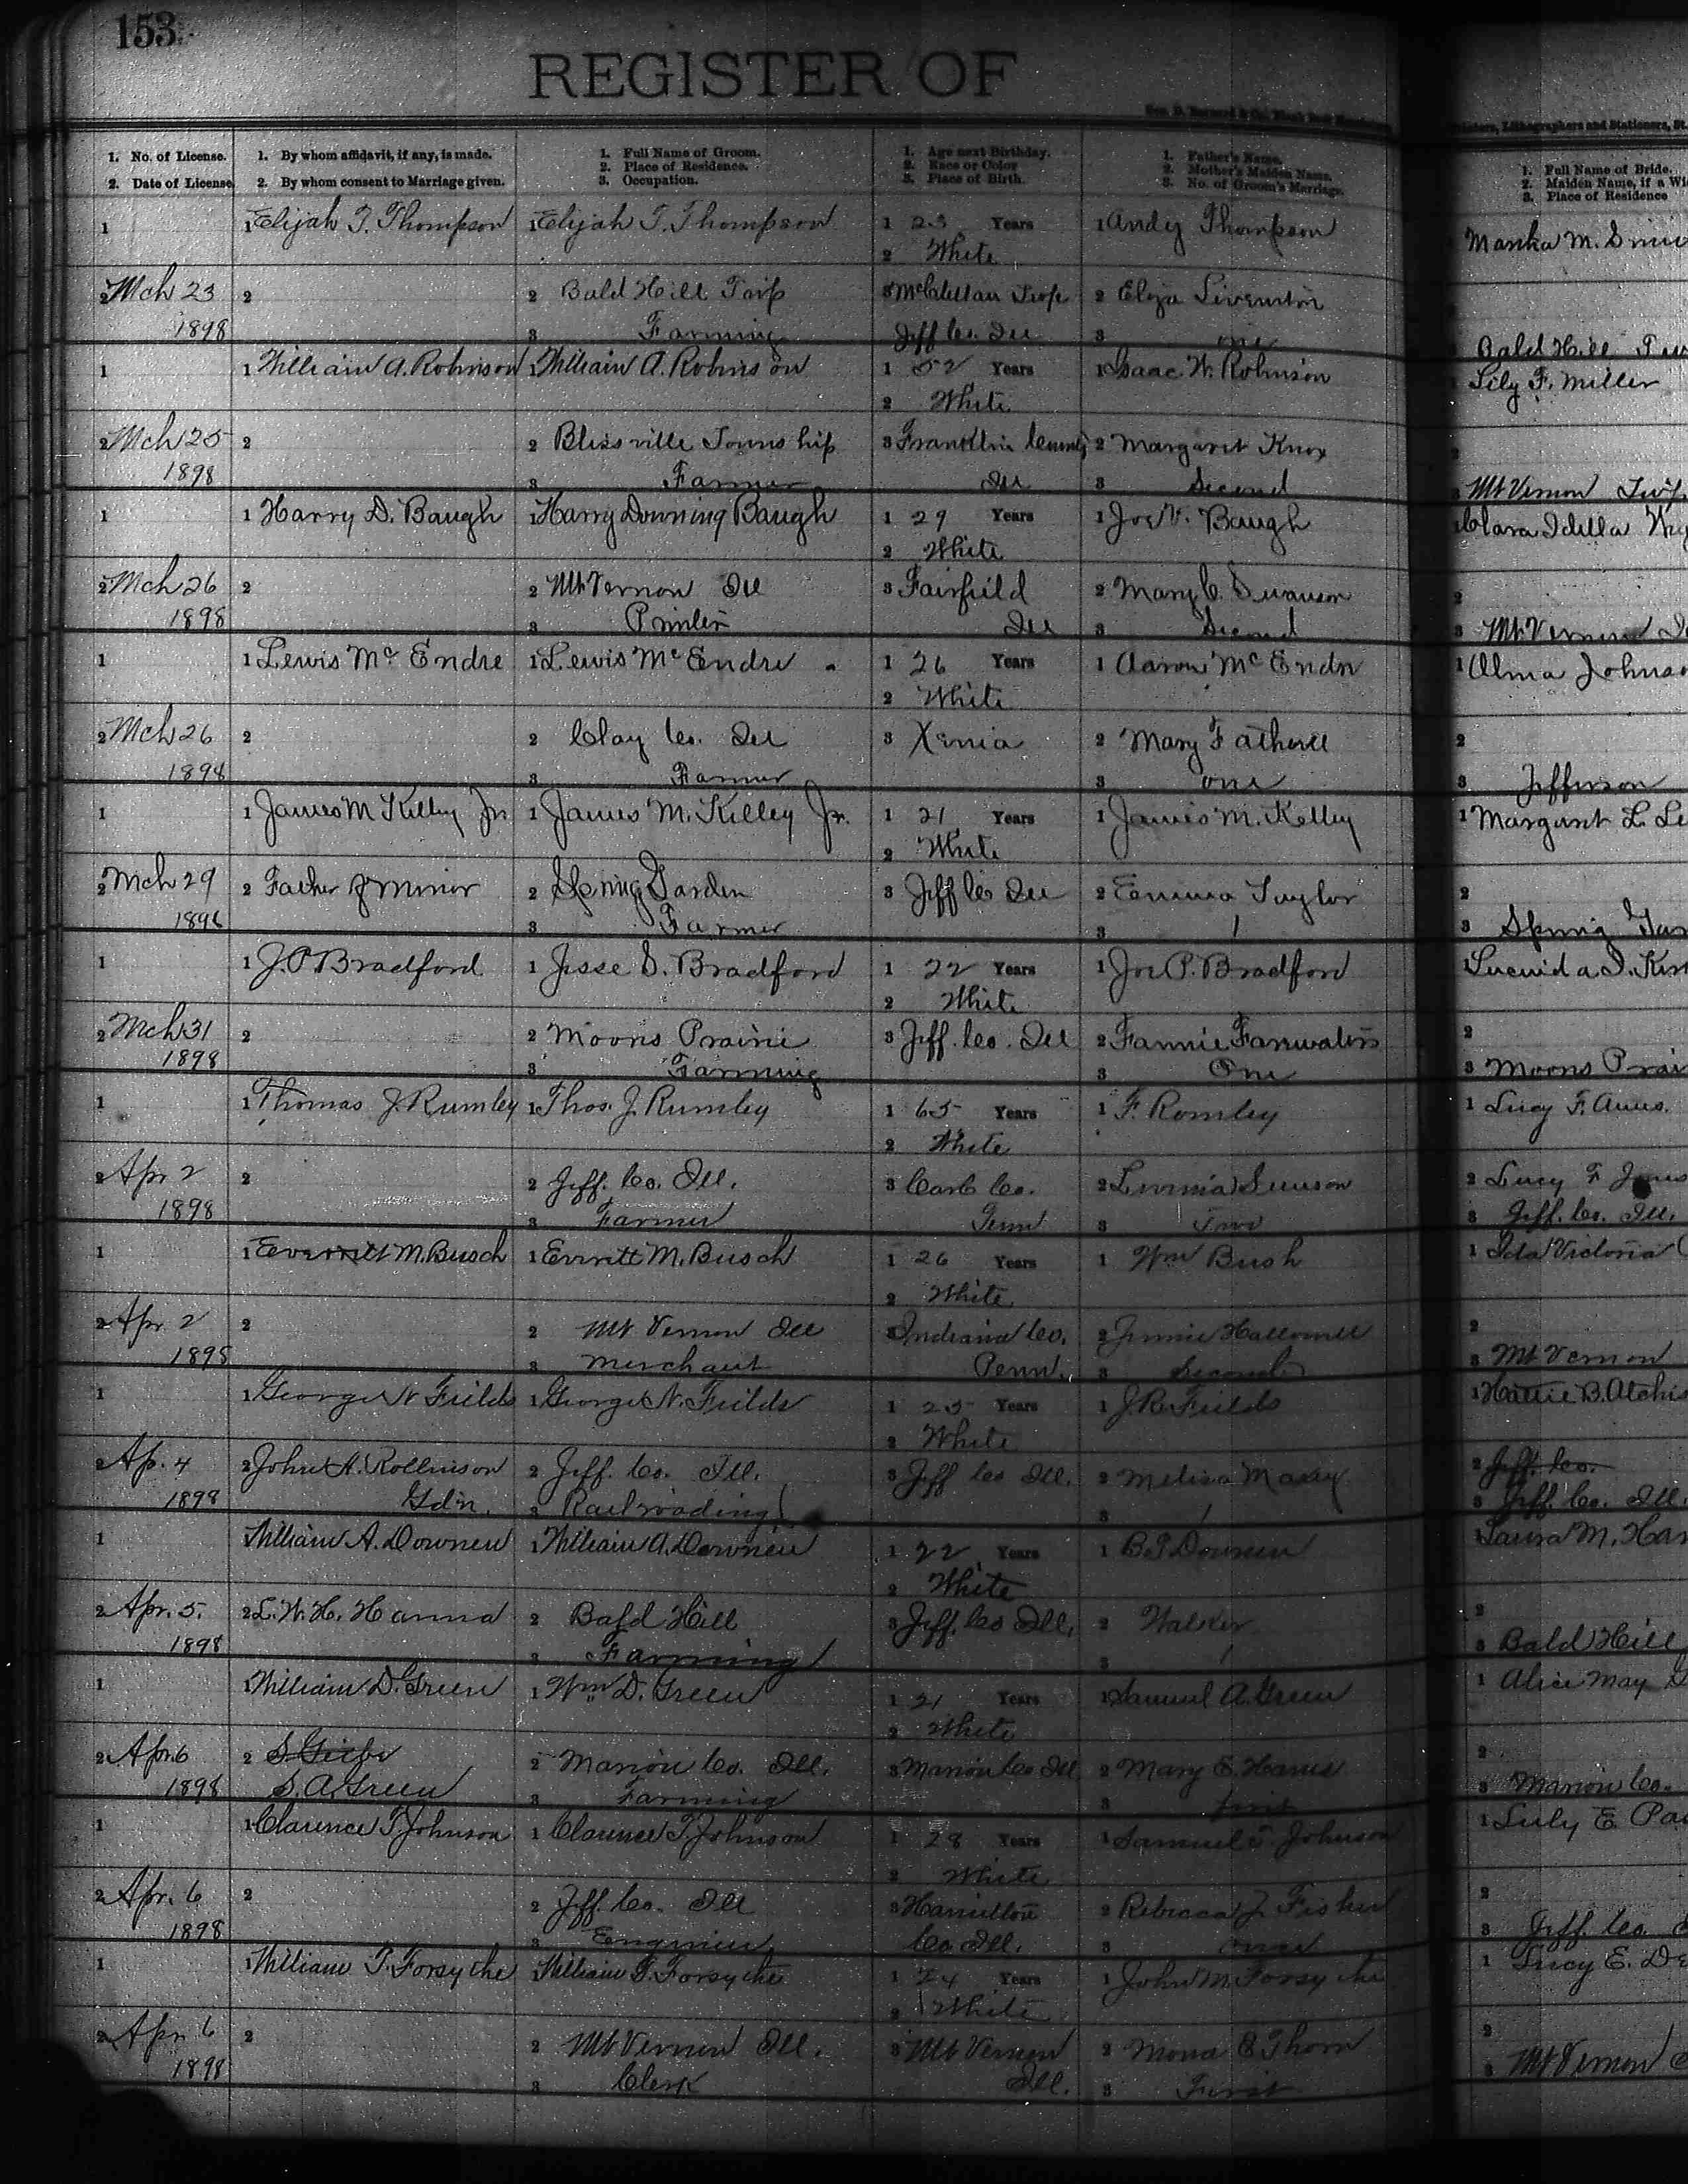 153.
REGISTER OF
1. No. of License.
2. Date of License.
1. By whom affidavit, if any, is made.
2. By whom consent to Marriage given.
1. Full Name of Groom.
2. Place of Residence.
3. Occupation.
1. Age next Birthday.
2. Race or Color
3. Place of Birth.
1. Father's Name.
2. Mother's Maiden Name.
3. No. of Groom's Marriage.
1. Full Name of Bride.
2. Maiden Name, if a Wi
3. Place of Residence
1 1 Elijah T. Thompson 1 Elijah T. Thompson 1 23 Years 1 Andy Thompson
2 White
2 Mch 23 2 2 Bald Hill Twp 3 McClellan Twp 2 Eliza
1898 3 Farming Jeff Co. Ill 3 one Bald Hill
1 1 William A. Robinson 1 William A. Robinson 1 52 Years 1 Isaac W. Robinson Lily F. Miller
2 White
2 Mch 25 2 2 Blissville Township 3 Franklin County 2 Margaret Knox
1898 3 Farmer Ill 3 Second 3 Mt Vernon Twp.
1 1 Harry D. Baugh 1 Harry Downing Baugh 1 29 Years 1 Joe V. Baugh 1 Clara Idella
2 White
2 Mch 26 2 2 Mt Vernon Ill 3 Fairfield 2 Mary C. Swanson 2
1898 3 Printer Ill 3 Second 3 Mt Vernon
1 1 Lewis Mc Endre 1 Lewis Mc Endre 1 26 Years 1 Aaron Mc Endre 1 Alma Johnso
2 White
2 Mch 26 2 2 Clay Co. Ill 3 Xenia 2 Mary 2
1898 3 Farmer 3 one 3 Jefferson
1 1 James M Kelley Jr 1 James M. Kelley Jr. 1 21 Years 1 James M. Kelley 1 Margaret L
2 White
2 Mch 29 2 Father of Minor 2 Spring Garden 3 Jeff Co Ill 2 Emma Taylor 2
3 Farmer 3 1 3 Spring Gar
1 1 J.P Bradford 1 Jesse S. Bradford 1 22 Years 1 Joe P. Bradford
2 White
2 Mch 31 2 2 Moons Prairie 3 Jeff. Co. Ill 2 Fannie 2
1898 3 Farming 3 One 3 Moons Prai
1 1 Thomas J. Rumley 1 Thos. J. Rumley 1 65 Years 1 F. Romley 1 Lucy F.
2 White
2 Apr 2 2 2 Jeff. Co. Ill. 3 Co. 2 2 Lucy F
1898 3 Farmer Tenn 3 Two 3 Jeff. Co. Ill.
1 1 Everritt M. Busch 1 Evrritt M. Busch 1 26 Years 1 Wm Bush 1 Ida Victoria
2 White
2 Apr. 2 2 2 Mt Vernon Ill 3 Indiana Co. 2 Jennie 2
1898 3 Merchant Penn. 3 Second 3 Mt Vernon
1 1 George N Fields 1 George N. Fields 1 25 Years 1 J.R. Fields 1 Hattie B. Atchis
2 White
2 Ap. 4 2 John H. Rollinson 2 Jeff. Co. Ill. 3 Jeff Co Ill. 2 Melissa 2 Jeff. Co.
1898 Gd'n. 3 Railroading 3 1 3 Jeff. Co. Ill.
1 William A. Downen 1 William A. Downen 1 22 Years 1 Downen Laura M. Han
2 White
2 Apr. 5. 2 L.W.H. Hanna 2 Bald Hill 3 Jeff. Co Ill. 2 Walker 2
1898 3 Farming 3 1 3 Bald Hill
1 1 William D. Green 1 Wm D. Green 1 21 Years 1 Samuel A. Green 1 Alice May
2 White
2 Apr 6 2 2 Marion Co. Ill. 3 Marion Co Ill 2 Mary E. 2
1898 S. A. Green 3 Farming 3 first 3 Marion Co.
1 1 Clarence T Johnson 1 Clarence T. Johnson 1 28 Years 1 Samuel Johnson 1 E.
2 White
2 Apr. 6 2 2 Jeff. Co. Ill 3 Hamilton 2 Rebecca J. Fisher 2
1898 3 Engineer Co. Ill. 3 3 Jeff. Co.
1 1 William T. Forsythe 1 William T. Forsythe 1 24 Years 1 John M. Forsythe 1 Lucy E.
2 White
2 Apr 6 2 2 Mt Vernon Ill. 3 Mt Vernon 2 Thorn 2
1898 3 Clerk Ill. 3 First 3 Mt Vernon